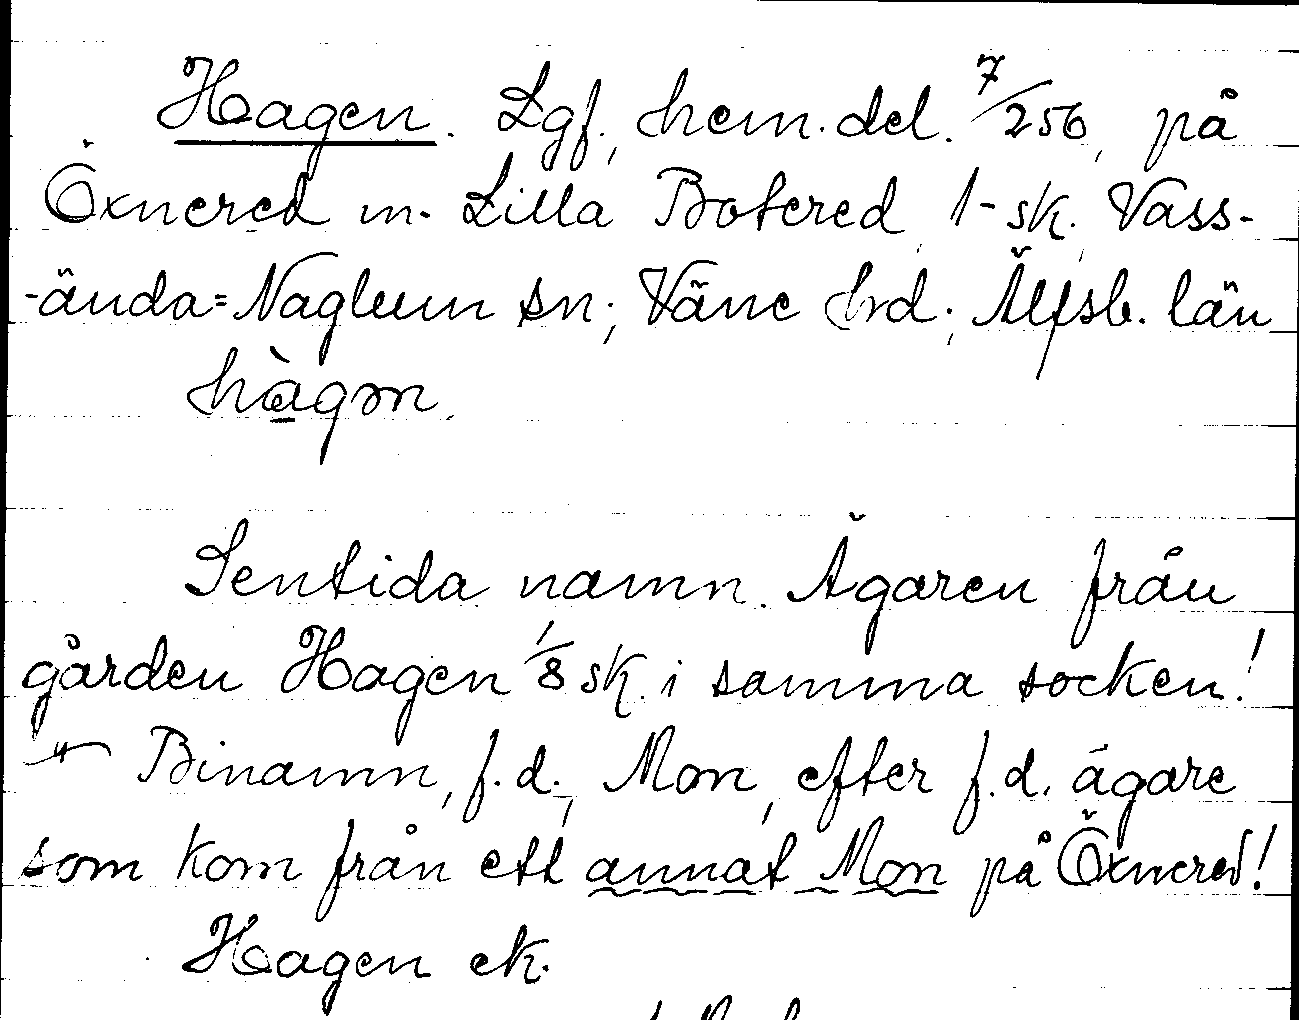 Hagen. Lgf, hem. del. 7/256, på
Öxnered m. Lilla Botered, 1-sk. Vass-
-ända=Naglum sn; Väne hrd; Älfsb. län
hàgɘn.
Sentida namn. Ägaren från
gården Hagen 1/8 sk. i samma socken!
Binamn, f.d., Mon, efter f.d. ägare
som kom från ett annat Mon på Öxnered!
Hagen ek.